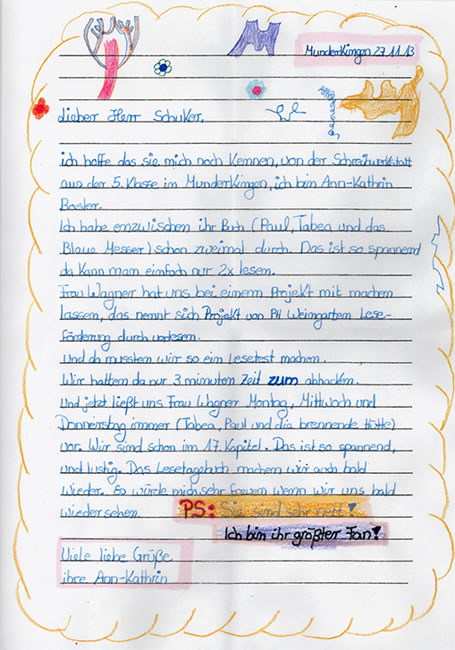 Munderkingen 27.11.13
Lieber Herr Schuker,
ich hoffe das sie mich noch Kennen, von der Schreibwerkstatt
aus der 5. Klasse im Munderkingen, ich bin Ann-Kathrin
Basler.
Ich habe enzwischen ihr Buch (Paul, Taben und das
Blaue Messer) schon zweimal durch. Das ist so spannend
da Kann man einfach nur 2x lesen.
Frau Wagner hat uns bei einem Projekt mit machen
lassen, das nennt sich Projekt von PH Weingartem Lese-
förderung durch vorlesen.
Und da mussten wir so ein Lesetest machen.
Wir hatten da nur 3 minuten Zeit zum abhacken.
Und jetzt ließt uns Frau Wagner Montag, Mittwoch und
Donnerstag immer (Taben, Paul und die brennende Hütte)
vor. Wir sind schon im 17. Kapitel. Das ist so spannend,
und lustig. Das Lesetagebuch machen wir auch bald
wieder. Es würde mich sehr freuen wenn wir uns bald
wiedersehen. PS: Sie sind sehr nett!
Ich bin ihr größter Fan!
Viele liebe Grüße
ihre Ann-Kathrin